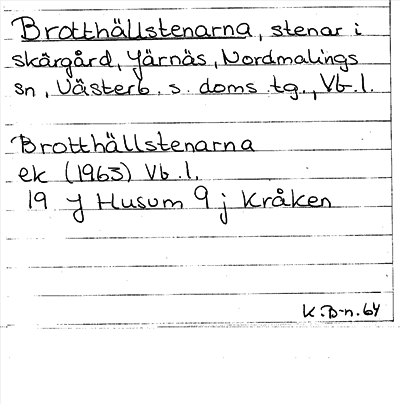 Brotthällstenarna, stenar i
skärgård, Järnäs, Nordmalings
sn, Västerb. s. doms. tg., Vb. l.
Brotthällstenarna
ek (1963) Vb. l.
19 J Husum 9 j Kråken
K.B-n. 64